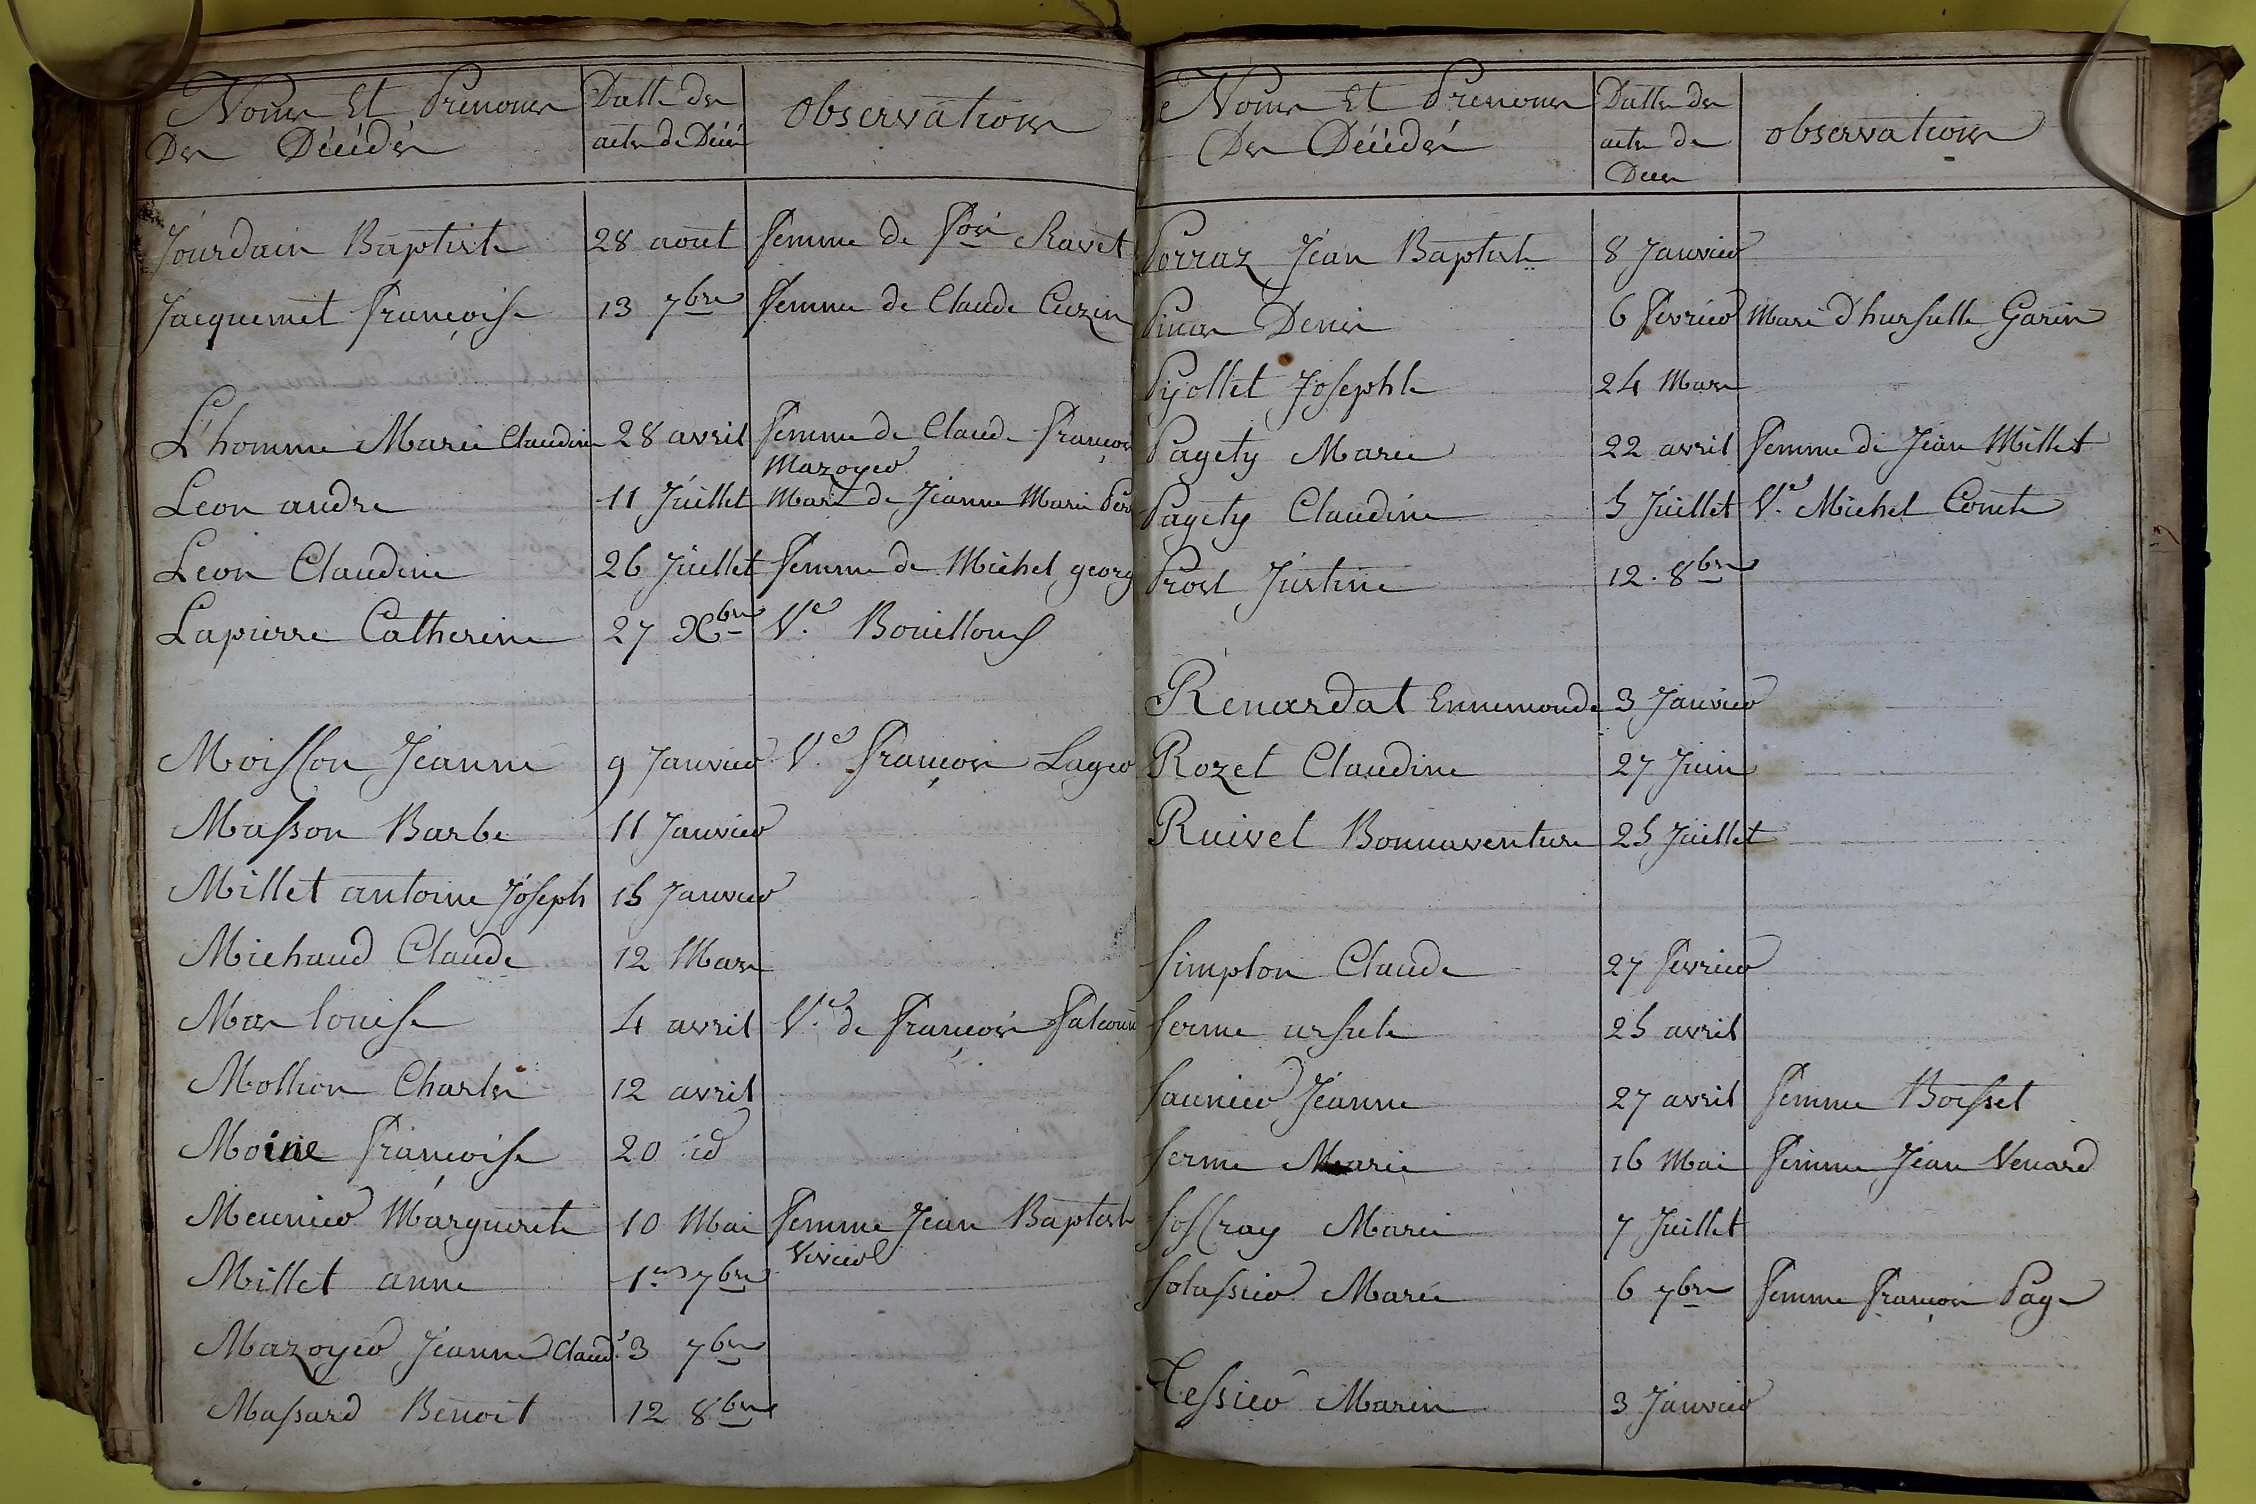 Noms Et Prenoms Datte des Observations
Des Décédés actes de Décès
Jourdain Baptiste 28 aout femme de fois Ravet
Jacquemet françoise 13 7bre femme de Claude Cuzin
L'homme Marie Claudine 28 avril femme de Claude françois
Mazoyer
Leon andre 11 Juillet Mari de Jeanne Marie
Leon Claudine 26 Juillet femme de Michel georg
Lapierre Catherine 27 Xbre Ve Bouilloud
Moisson Jeanne 9 Janvier Ve françois Lager
Masson Barbe 11 Janvier
Millet antoine Joseph 15 Janvier
Michaud Claude 12 Mars
Mas louise 4 avril Ve de françois
Mollion Charles 12 avril
Moine françoise 20 id
Meunier Marguerite 10 Mai femme Jean Baptiste
Millet anne 1er 7bre
Mazoyer Jeanne Claude 3 7bre
Massard Benoit 12 8bre
Noms Et Prenoms Dattes des
Des Décédés actes de observations
Deces
Porraz Jean Baptiste 8 Janvier
Pinas Denis 6 fevrier Mari D'hursulle Garin
Pyollet Josephte 24 Mars
Pagety Marie 22 avril femme de Jean Millet
Pagety Claudine 5 Juillet Ve Michel Comte
Prost Justine 12. 8bre
Renardat Ennemonde 3 Janvier
Rozet Claudine 27 Juin
Ruivet Bonnaventure 25 Juillet
Simplon Claude 27 fevrier
Serme ursule 25 avril
Saunier Jeanne 27 avril femme Boisset
Serme Marie 16 Mai femme Jean Venard
Soffray Marie 7 Juillet
Solassier Marie 6 7bre femme françois Page
Tessier Marin 3 Janvier